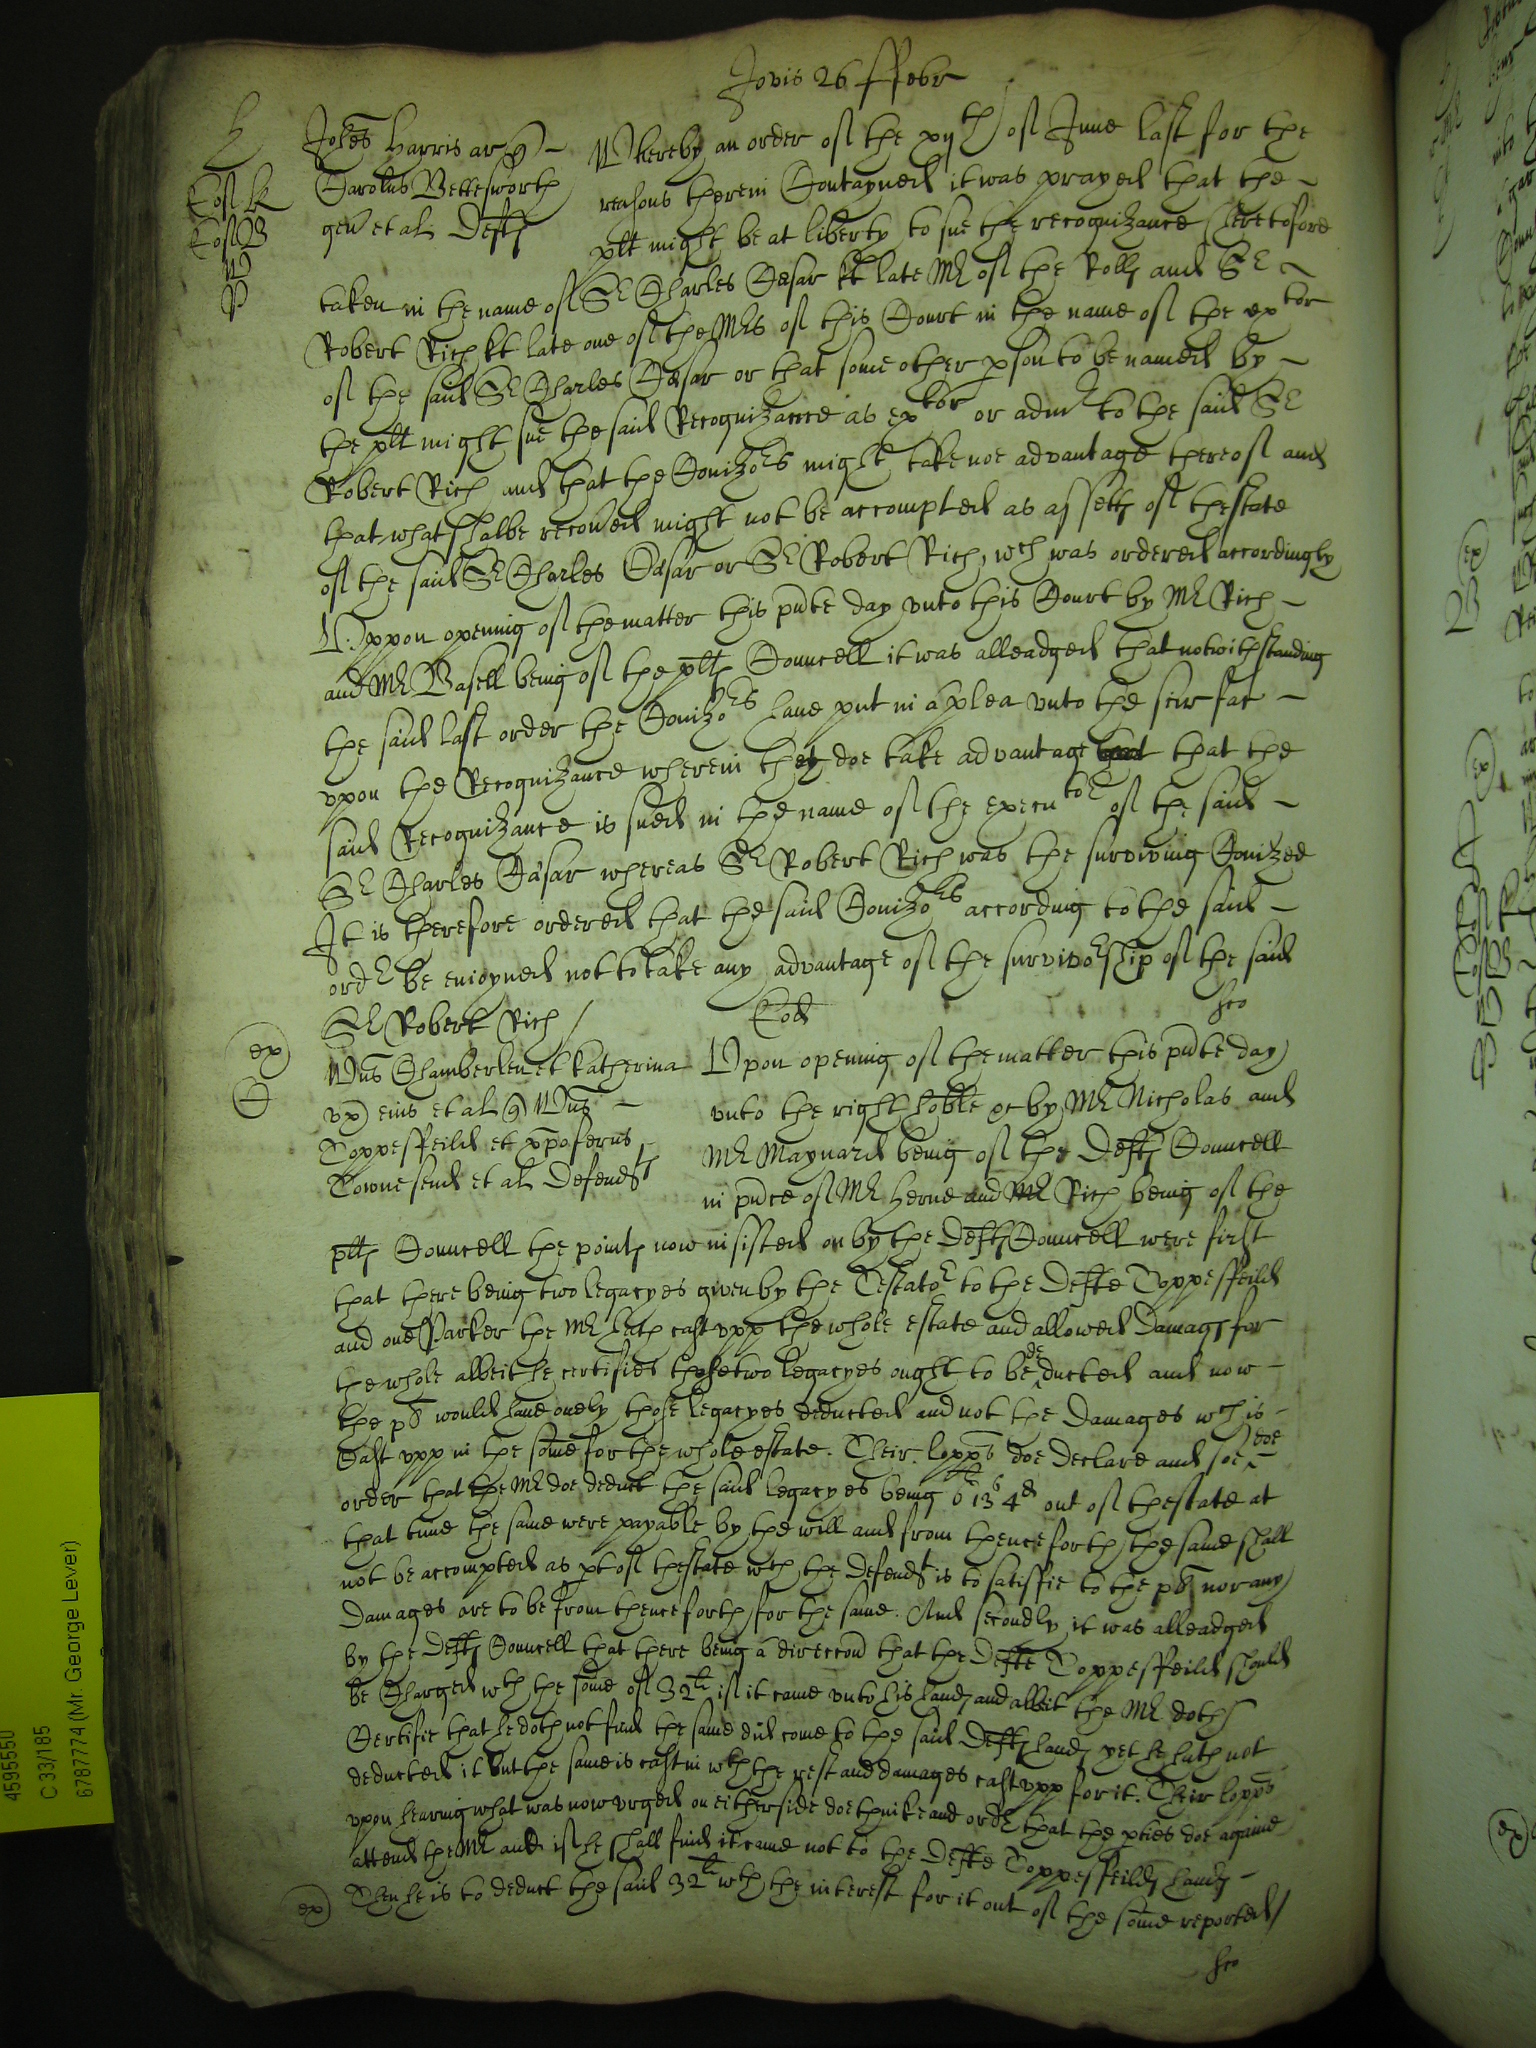 Jovis 26 ffebr
Johes Harris ar q
Carolus Bettesworth
gen et al Defts
Whereby an order of the xijth of June last for the
reasons therein Contayned it was prayed that the
plt might be at liberty to sue the recognizance heretofore
taken in the name of Sr Charles Cesar kt late Mr of the Rolls and Sr
Robert Rich kt late one of the Mrs of this Court in the name of the extor
of the said Sr Charles Cesar or that some other pson to be named by
the plt might sue the said Recognizance as extor or admr to the said Sr
Robert Rich and that the Conizors might take noe advantage thereof and
that what shalbe recoued might not be accompted as assetts of thestate
of the said Sr Charles Cesar or Sr Robert Rich, wch was ordered accordingly
Vppon opening of the matter this pnte day vnto this Court by Mr Rich
and Mr Vasell being of the plts Councell it was alleadged that notwithstanding
the said last order the Conizors haue put in a plea vnto the scir fac
vpon the Recognizance wherein they doe take advantage that the
said Recognizance is sued in the name of the executor of the said
Sr Charles Cesar whereas Sr Robert Rich was the surviving Conizee
It is therefore ordered that the said Conizors according to the said
ordr be enioyned not to take any advantage of the survivorship of the said
Sr Robert Rich
Eod
ex
Wms Chamberlen et Katherina
vx eius et al q Wms
Toppesfeild et xpoferus
Townesend et al Defendts
Vpon opening of the matter this pnte day
vnto the right hoble &c by Mr Nicholas and
Mr Maynard being of the Defts Councell
in pnce of Mr Herne and Mr Rich being of the
plts Councell the points now insisted on by the Defts Councell were first
that there being two legacyes given by the Testator to the Defte Toppesfeild
and one Parker the Mr hath cast vpp the whole estate and allowed Damags for
the whole albeit he certifies those two legacyes ought to be deducted and now
the plt would haue onely those legacyes deducted and not the Damages wch is
Cast vpp in the some for the whole estate. Their lopps doe declare and soe doe
order that the Mr doe deduct the said legacyes being 6li 13s 4d out of thestate at
that time the same were payable by the will and from thenceforth the same shall
not be accompted as pt of thestate wch the defendt is to satisfie to the plt nor any
Damages are to be from thenceforth for the same. And secondly it was alleadged
by the Defts Councell that there being a direccon that the Defte Toppesfeild should
be Charged wth the some of 32li if it came vnto his hands and albeit the Mr doth
Certifie that he doth not find the same did come to the said Defts hands yet he hath not
deducted it but the same is cast in wth the rest and damages cast vpp for it. Their lopps
vpon hearing what was now vrged on either side doe thinke and ordr that the pties doe againe
attend the Mr and if he shall find it came not to the Defte Toppesfeilds hands
Then he is to deduct the said 32li wth the interest for it out of the some reported
ex
4595550
C 33/185
6787774 (Mr. George Lever)